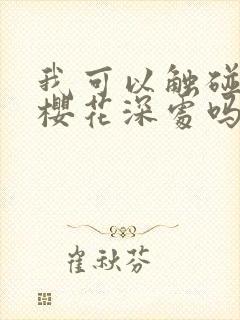 我可以触碰
樱花深处吗
崔秋芬